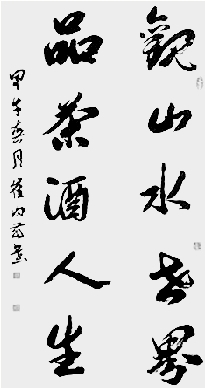 觀山水世界
品茶酒人生
甲午